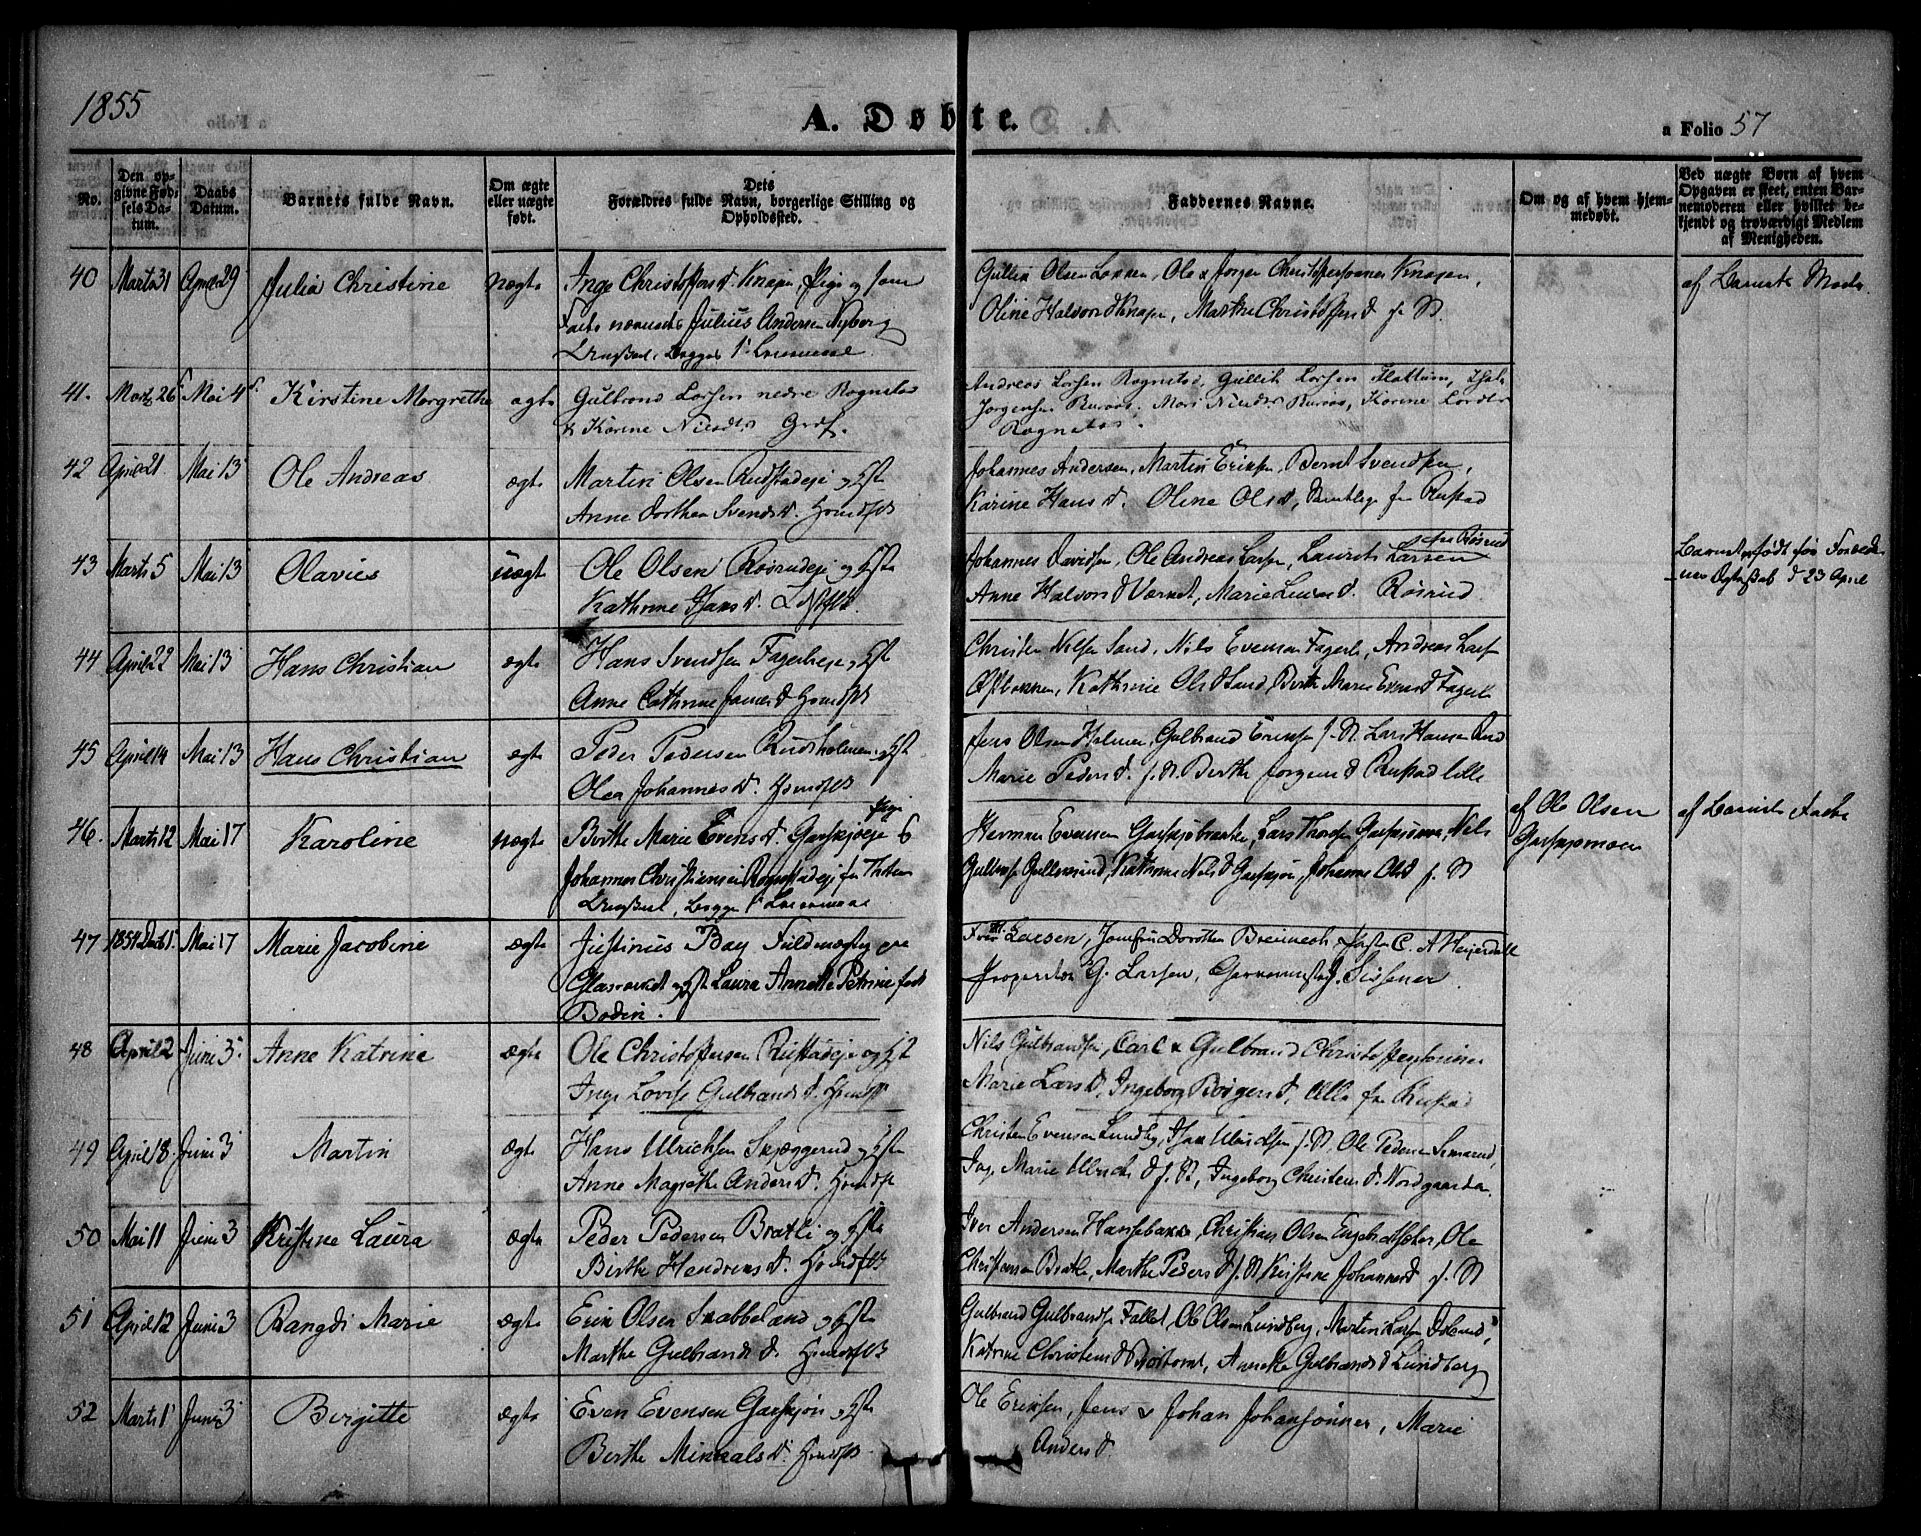 1855
A. Døbte.
a Folio 57
No.
Den op-
givne Fød-
sels Da-
tum.
Daabs
Datum.
Barnets fulde Navn.
Om ægte
eller uægte
født.
Dets
Forældres fulde Navn, borgerlige Stilling og
Opholdssted.
Faddernes Navne.
Om og af hvem hjem-
medøbt.
Ved uægte Børn af hvem
Opgaven er skeet, enten Bar-
nemoderen eller hvilket be-
kjendt og troværdigt Medlem
af Menigheden.
40 Marts 31 April 29 Julia Christine uægte Inge Christoffersd. Knapen, Pige og som
Julius Andersen Nyborg
Ungkarl, begge
Gullik Olsen Ole & Jørgen Christophersønner Knapen,
Oline Halvorsd Knapen, Marthe d f. St.
af Barnets Moder
41. Marts 26 Mai 4 Kirstine Margrethe ægte Gulbrand Larsen nedre Rognstad
& Karine
Andreas Larsen Rognstad, Gullik Larsen
Jørgensen Karine
Rognstad.
42 April 21 Mai 13 Ole Andreas ægte Martin Olsen og Hst
Anne Dorthea Svendsd. Hsmdfk
Johannes Andersen, Martin Eriksen, Bernt Svendsen,
Karine Hansd. Oline Olsd, Samtlige fra Rustad
43 Marts 5 Mai 13 Olavies uægte Ole Olsen Røsrudeje og Hst
Kathrine d.
Johannes Davidsen, Ole Andreas Larsen, Laurits Larsen fra Røsrud
Anne Halvorsd Marie d. Røsrud
Barnet er født før
Ægteskab d 23 April
44 April 22 Mai 13 Hans Christian ægte Hans Svendsen Fagerlieje og Hst
Anne Cathrine d Hsmdfk
Christen Nilsen Sand, Nils Evensen Fagerli, Andreas Larsen
Kathrine Olsd Sand, Berthe Marie d Fagerli
45 April 14 Mai 13 Hans Christian ægte Peder Pedersen Rudsholmen og Hst
Olea Johannesd. Hsmdfk
Jens Olsen Holmen, Gulbrand Eriksen f. St. Lars Hansen Rud
Marie Pedersd. f. St Berthe Jørgensd Rustad lille
46. Marts 12 Mai 17 Karoline uægte Berthe Marie Evensd. Garsjøeje Pige &
Johannes Christiansen fra Thoten
Ungkarl, begge
Herman Evensen Lars Nils
Kathrine Nilsd Garsjø, Johanne Olsd f. St
af Ole Olsen
Garsjømoen
af Barnets Fader
47 1854 Dcb 1. Mai 17 Marie Jacobine ægte Justinus Bay Fuldmægtig
Glasværket og Hst Laura Annette Petrine født
Bodin.
Larsen, Jomfru Dorothea C. A Heijerdahl
G. Larsen,
48 April 2 Juni 3. Anne Katrine ægte Ole Christoffersen Rustadeje og Hst
Inge Lovise Gulbrandsd. Hsmdfk
Nils Gulbrandsen, Carl & Gulbrand Christoffersønner
Marie Larsd, Ingeborg Børgersd, Alle fra Rustad
49 April 18. Juni 3 Martin ægte Hans Ulrichsen Skjæggerud og Hst
Anne Magrethe Andersd. Hsmdfk
Christen Evensen Lundby, Isak Ulrichsen f. St, Ole Pedersen
Marie Ulrichsd f. St, Ingeborg Christensd Nordgaarden.
50 Mai 11 Juni 3 Kristine Laura ægte Peder Pedersen Bratli og Hst
Birthe Hendriksd. Hsmdfk
Iver Andersen Christian Olsen Ole
Christensen Bratli, Marthe Pedersd f. St Kristine Johannesd f. St
51 April 12 Juni 3 Rangdi Marie ægte Erik Olsen Snabbeland og Hst
Marthe Gulbrandsd. Hsmdfk
Gulbrand Gulbrandsen Fallet, Ole Olsen Lundberg, Martin Larsen
Katrine Christensd Annette Gulbrandsd Lundberg
52 Marts 1 Juni 3 Birgitte ægte Even Evensen Garsjøn og Hst
Berthe d. Hsmdfk
Ole Eriksen, Jens & Johan Johansønner, Marie
Andersd.